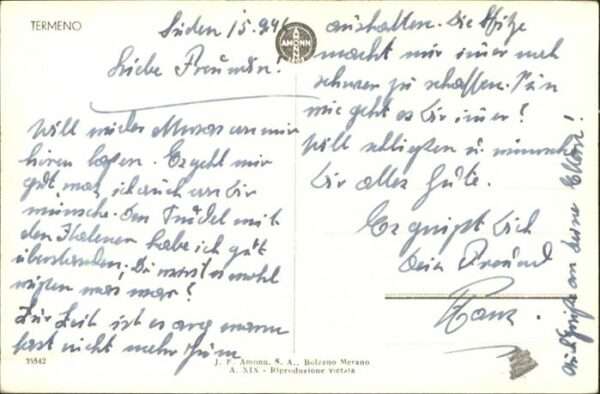 TERMENO
Süden 15.9.41
AMONN
Liebe Freundin!
Will wieder etwas von mir
hören lassen. Es geht mir
gut, was ich auch von Dir
wünsche. Den Trubel mit
den Italiener habe ich gut
überstanden, Du wirst es wohl
wissen was war?
Zur Zeit ist es arg warm
fast nicht mehr zum
aushalten. Die Hitze
macht mir immer noch
schwer zu schaffen. Nun
wie geht es Dir immer?
Will schließen u. wünsche
Dir alles Gute.
Es grüßt Dich
Dein Freund
Franz.
Grüße an deine Eltern!
35542
J. F. Amonn, S. A., Bolzano Merano
A. XIX - Riproduzione vietata